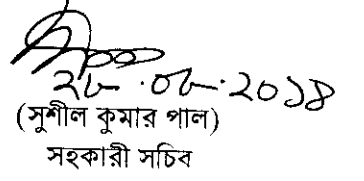 ২৮.০৮.২০১৪
(সুশীল কুমার পাল)
সহকারী সচিব